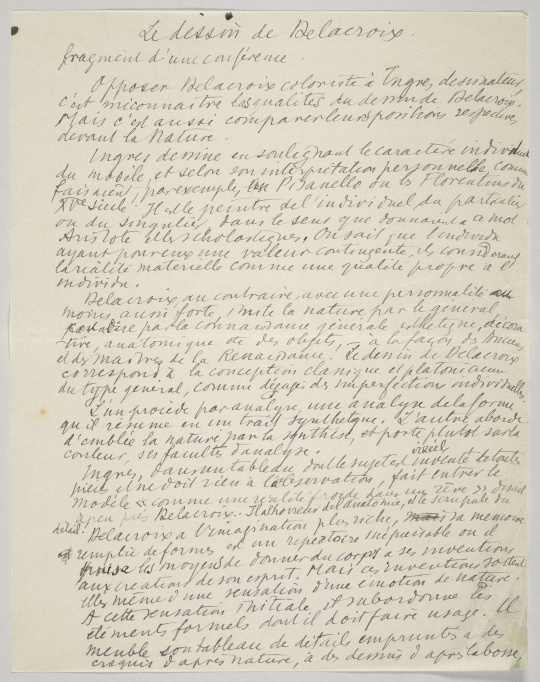 Le dessin de Delacroix.
fragment d'une conférence.
Opposer Delacroix coloriste à Ingres dessinateur
c'est méconnaitre les qualités du dessin de Delacroix.
Mais c'est aussi comparer leurs positions respectives
devant la Nature.
Ingres dessine en soulignant le caractère individuel
du modèle, et selon son interprétation personnelle, comme
faisaient, par exemple, un Pisanello ou les Florentins du
XVe siècle. Il est le peintre de l'individuel du particulier
ou du singulier, dans le sens que donnaient a ce mot
Aristote et les scholastiques. On sait que l'individu
ayant pour eux une valeur contingente, ils considéraient
la réalité matérielle comme une qualité propre à l'
individu.
Delacroix au contraire, avec une personnalité au
moins aussi forte, imite la nature par le général,
par la connaissance générale, esthétique, décora
tive, anatomique etc des objets, à la façon des Anciens
et des maitres de la Renaissance. Le dessin de Delacroix
correspond à la conception classique et platonicienne
du type général, comme dégagé des imperfections individuelles.
L'un procède par analyse, une analyse de la forme
qu'il résume en un trait synthétique. L'autre aborde
d'emblée la nature par la synthèse, et porte plutot sur la
couleur, ses facultés d'analyse.
Ingres, dans un tableau, dont le sujet est inventé de toutes
pièces et ne doit rien à l'observation, fait entrer le
modèle comme une réalité froide dans un rêve
a peu près Delacroix. Il a horreur de l'anatomie, et le scrupule du
détail.
Delacroix a l'imagination plus riche, sa memoire
remplie de formes est un répertoire inépuisable ou il
puise les moyens de donner du corps a ses inventions
aux creations de son esprit. Mais ces inventions sortent
elles même d'une sensation d'une emotion de nature.
A cette sensation initiale il subordonne les
éléments formels dont il doit faire usage. Il
meuble son tableau de détails empruntés a des
croquis d'après nature, à des dessins d'après la bosse,